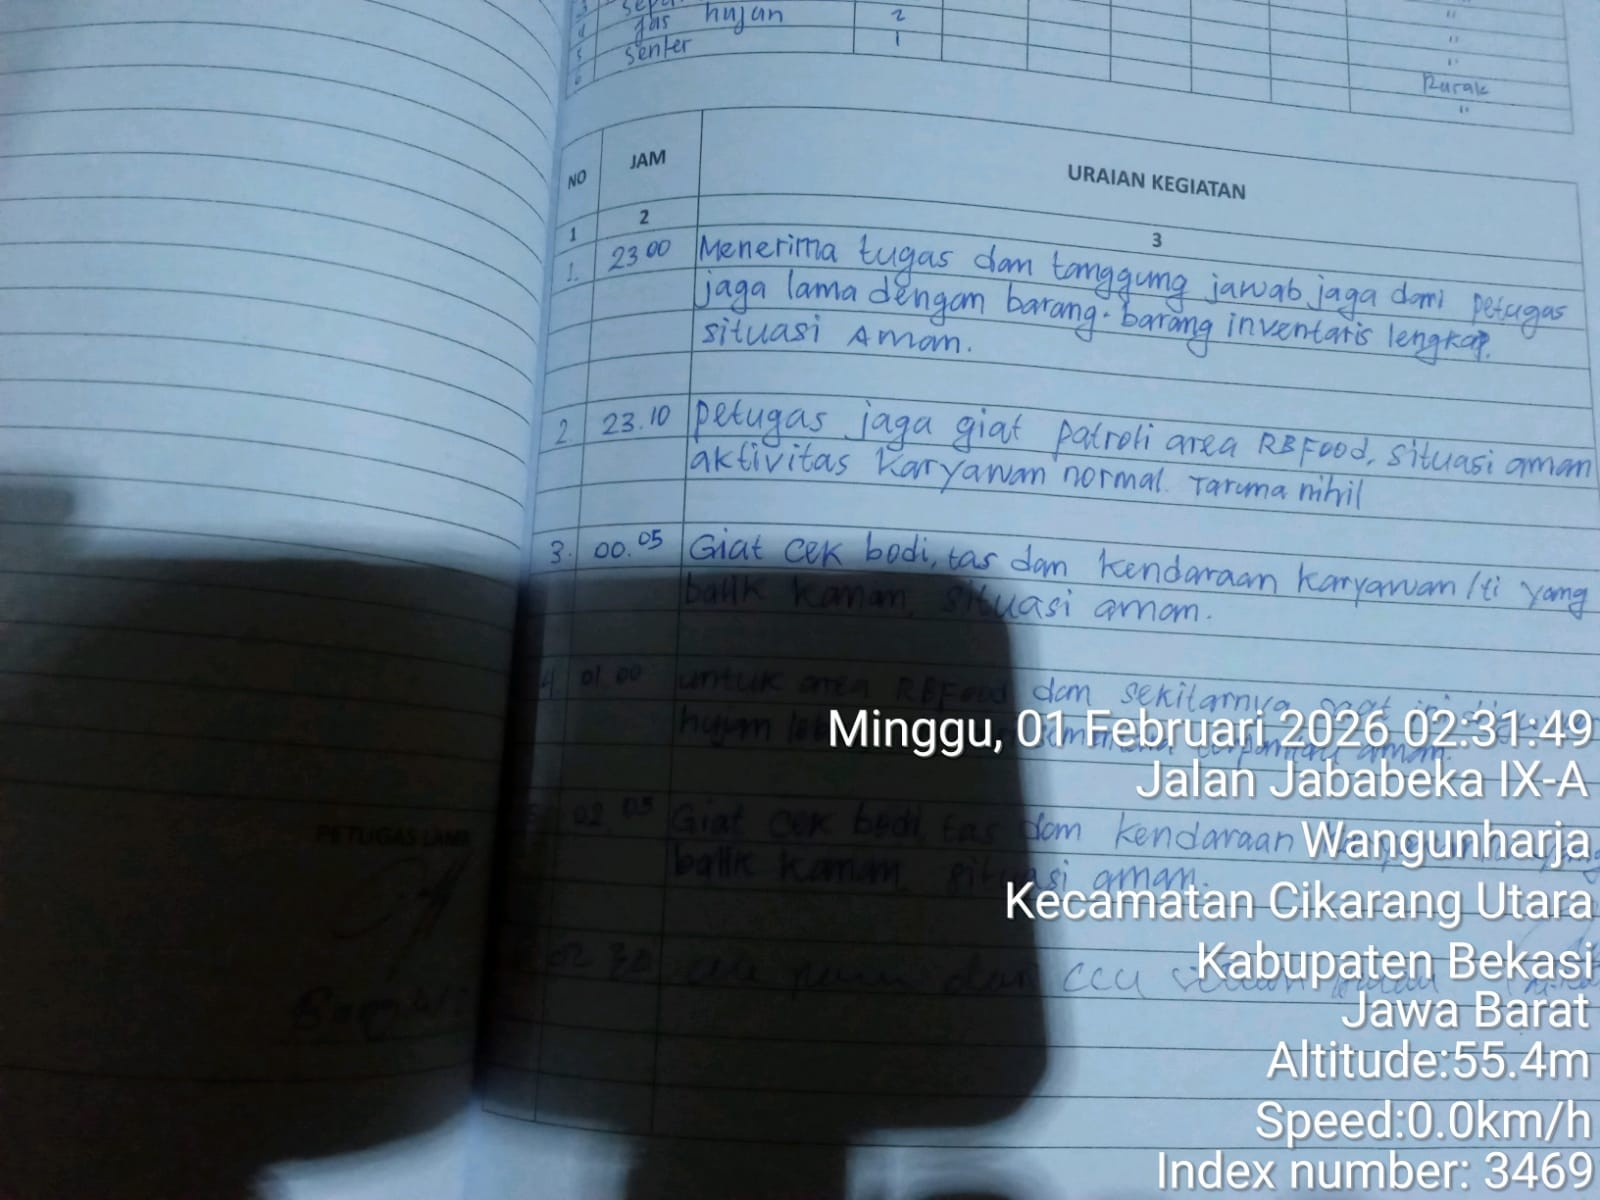 jas hujan 2 "
senter 1 "
5
6 Rurak
"
NO JAM URAIAN KEGIATAN
1 2 3
1. 23 00 Menerima tugas dan tanggung jawab jaga dari petugas
jaga lama dengan barang-barang inventaris lengkap.
situasi Aman.
2 23.10 petugas jaga giat patroli area RBFood, situasi aman
aktivitas karyawan normal. Taruma nihil
3. 00.05 Giat cek bodi, tas dan kendaraan karyawan/ti yang
balik kanan, situasi aman.
4 01 00 untuk area RBFood dan sekitarnya saat ini
hujan terpantau aman.
02 05 Giat cek bodi, tas dan kendaraan
balik kanan, situasi aman.
02 30 dari CCU
PETUGAS LAMA
Minggu, 01 Februari 2026 02:31:49
Jalan Jababeka IX-A
Wangunharja
Kecamatan Cikarang Utara
Kabupaten Bekasi
Jawa Barat
Altitude:55.4m
Speed:0.0km/h
Index number: 3469